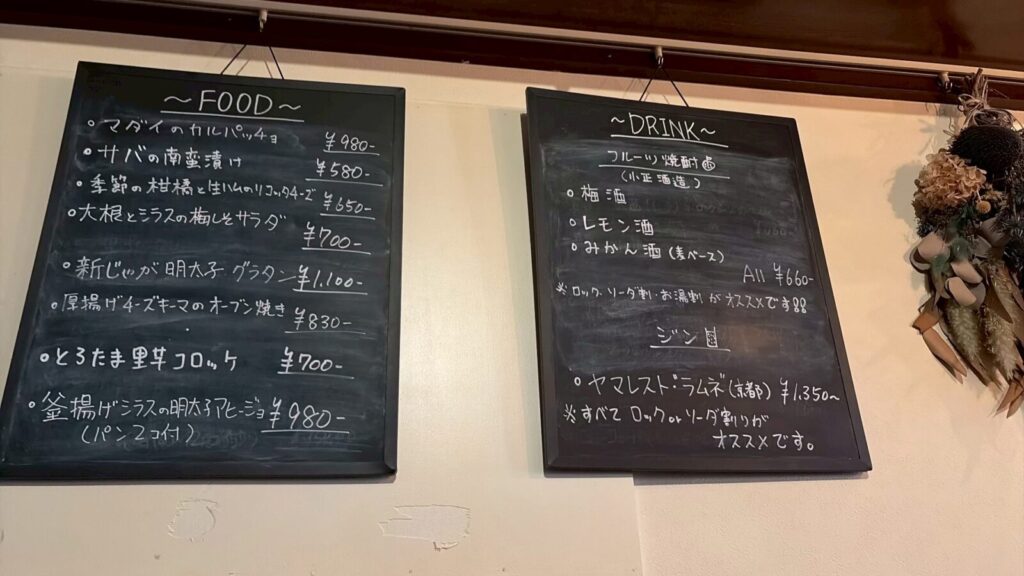 ～FOOD～
・マダイのカルパッチョ ¥980-
・サバの南蛮漬け ¥580-
・季節の柑橘と生ハムのリコッタチーズ ¥650-
・大根とシラスの梅しそサラダ ¥700-
・新じゃが明太子グラタン ¥1.100-
・厚揚げチーズキーマのオーブン焼き ¥830-
・とろたま里芋コロッケ ¥700-
・釜揚げシラスの明太子アヒージョ ¥980-
(パン2コ付)
～DRINK～
フルーツ焼酎
(小正酒造)
・梅酒
・レモン酒
・みかん酒(麦ベース)
All ¥660-
※ロック・ソーダ割・お湯割がオススメです!!
ジン
・ヤマレスト・ラムネ(京都) ¥1.350~
※すべてロックorソーダ割りが
オススメです。